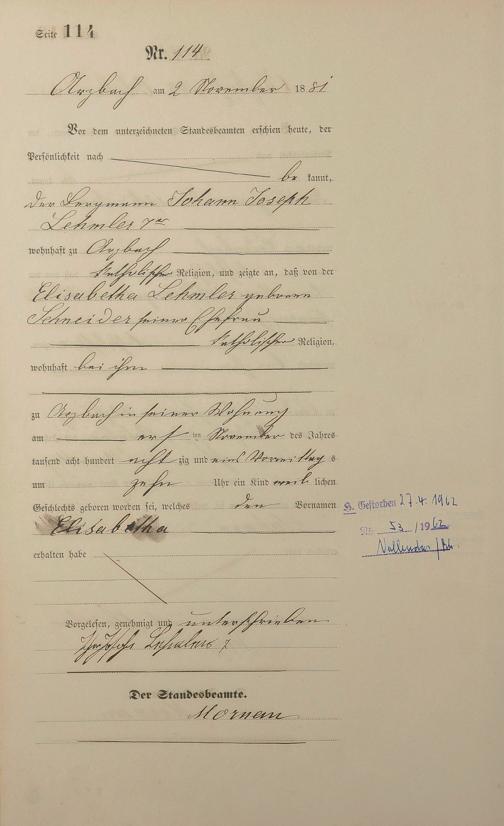 Seite 114
Nr. 114
Arzbach am 2 November 1881
Vor dem unterzeichneten Standesbeamten erschien heute, der
Persönlichkeit nach
be kannt,
der Bergmann Johann Joseph
Lehmler
wohnhaft zu Arzbach
katholischer Religion, und zeigte an, daß von der
Elisabetha Lehmler geborene
Schneider seiner Ehefrau
katholischer Religion,
wohnhaft bei ihm
zu Arzbach in seiner Wohnung
am ersten November des Jahres
tausend acht hundert acht zig und eins Vormittag s
um zehn Uhr ein Kind weib lichen
Geschlechts geboren worden sei, welches den Vornamen
Elisabetha
erhalten habe
Vorgelesen, genehmigt und unterschrieben
Der Standesbeamte.
Gestorben 27.4.1962
Nr. 53/1962
Vallendar